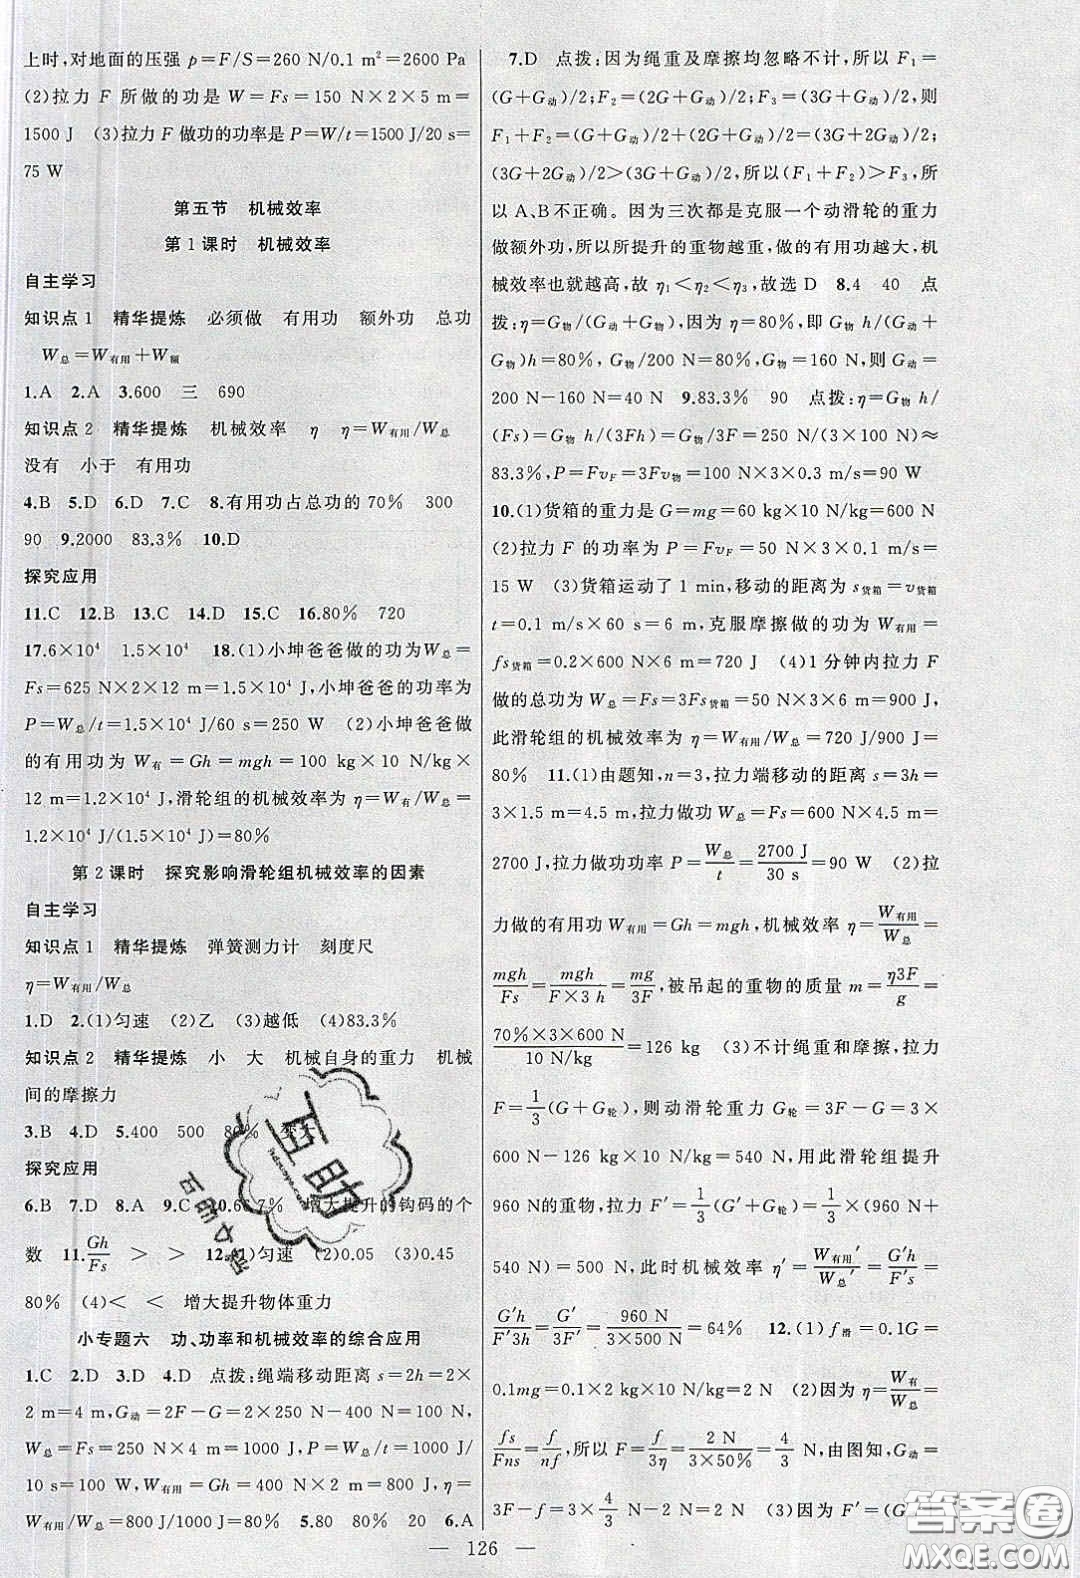 上时,对地面的压强 p=F/S=260 N/0.1 m²=2600 Pa
(2)拉力 F 所做的功是 W=Fs=150 N×2×5 m=
1500 J (3)拉力 F 做功的功率是 P=W/t=1500 J/20 s=
75 W
第五节 机械效率
第1课时 机械效率
自主学习
知识点1 精华提炼 必须做 有用功 额外功 总功
W总=W有用+W额
1.A 2.A 3.600 三 690
知识点2 精华提炼 机械效率 η η=W有用/W总
没有 小于 有用功
4.B 5.D 6.D 7.C 8.有用功占总功的70% 300
90 9.2000 83.3% 10.D
探究应用
11.C 12.B 13.C 14.D 15.C 16.80% 720
17.6×10⁴ 1.5×10⁴ 18.(1)小坤爸爸做的功为W总=
Fs=625 N×2×12 m=1.5×10⁴ J,小坤爸爸的功率为
P=W总/t=1.5×10⁴ J/60 s=250 W (2)小坤爸爸做
的有用功为 W有=Gh=mgh=100 kg×10 N/kg×
12 m=1.2×10⁴ J,滑轮组的机械效率为 η=W有/W总=
1.2×10⁴ J/(1.5×10⁴ J)=80%
第2课时 探究影响滑轮组机械效率的因素
自主学习
知识点1 精华提炼 弹簧测力计 刻度尺
η=W有用/W总
1.D 2.(1)匀速 (2)乙 (3)越低 (4)83.3%
知识点2 精华提炼 小 大 机械自身的重力 机械
间的摩擦力
3.B 4.D 5.400 500 80%
探究应用
6.B 7.D 8.A 9.C 10.66.7% 增大提升的钩码的个
数 11.Gh/Fs > > 12.(1)匀速 (2)0.05 (3)0.45
80% (4)< < 增大提升物体重力
小专题六 功、功率和机械效率的综合应用
1.C 2.D 3.D 4.D 点拨:绳端移动距离 s=2h=2×
2 m=4 m,G动=2F-G=2×250 N-400 N=100 N,
W总=Fs=250 N×4 m=1000 J,P=W总/t=1000 J/
10 s=100 W,W有用=Gh=400 N×2 m=800 J,η=
W有用/W总=800 J/1000 J=80% 5.80 80% 20 6.A
7.D 点拨:因为绳重及摩擦均忽略不计,所以 F₁=
(G+G动)/2;F₂=(2G+G动)/2;F₃=(3G+G动)/2,则
F₁+F₂=(G+G动)/2+(2G+G动)/2=(3G+2G动)/2;
(3G+2G动)/2>(3G+G动)/2,所以(F₁+F₂)>F₃,所
以A、B不正确。因为三次都是克服一个动滑轮的重力
做额外功,所以所提升的重物越重,做的有用功越大,机
械效率也就越高,故 η₁<η₂<η₃,故选D 8.4 40 点
拨:η=G物/(G动+G物),因为 η=80%,即 G物 h/(G动+
G物)h=80%,G物/200 N=80%,G物=160 N,则 G动=
200 N-160 N=40 N 9.83.3% 90 点拨:η=G物 h/
(Fs)=G物 h/(3Fh)=G物/3F=250 N/(3×100 N)≈
83.3%,P=FvF=F×3v物=100 N×3×0.3 m/s=90 W
10.(1)货箱的重力是 G=mg=60 kg×10 N/kg=600 N
(2)拉力 F 的功率为 P=FvF=50 N×3×0.1 m/s=
15 W (3)货箱运动了 1 min,移动的距离为 s货箱=v货箱
t=0.1 m/s×60 s=6 m,克服摩擦做的功为 W有用=
fs货箱=0.2×600 N×6 m=720 J (4)1分钟内拉力 F
做的总功为 W总=Fs=3Fs货箱=50 N×3×6 m=900 J,
此滑轮组的机械效率为 η=W有用/W总=720 J/900 J=
80% 11.(1)由题知,n=3,拉力端移动的距离 s=3h=
3×1.5 m=4.5 m,拉力做功 W总=Fs=600 N×4.5 m=
2700 J,拉力做功功率 P=W总/t=2700 J/30 s=90 W (2)拉
力做的有用功 W有用=Gh=mgh,机械效率 η=W有用/W总=
mgh/Fs=mgh/F×3 h=mg/3F,被吊起的重物的质量 m=η3F/g=
70%×3×600 N/10 N/kg=126 kg (3)不计绳重和摩擦,拉力
F=1/3(G+G轮),则动滑轮重力 G轮=3F-G=3×
600 N-126 kg×10 N/kg=540 N,用此滑轮组提升
960 N的重物,拉力 F′=1/3(G′+G轮)=1/3×(960 N+
540 N)=500 N,此时机械效率 η′=W有用′/W总′=G′h/F′s=
G′h/F′3h=G′/3F′=960 N/3×500 N=64% 12.(1)f滑=0.1G=
0.1mg=0.1×2 kg×10 N/kg=2 N (2)因为 η=W有/W总=
fs/Fns=f/nf,所以 F=f/3η=2 N/3×50%=4/3 N,由图知,G动=
3F-f=3×4/3 N-2 N=2 N (3)因为 F′=(G
126
互助
答案圈
MXQE.COM